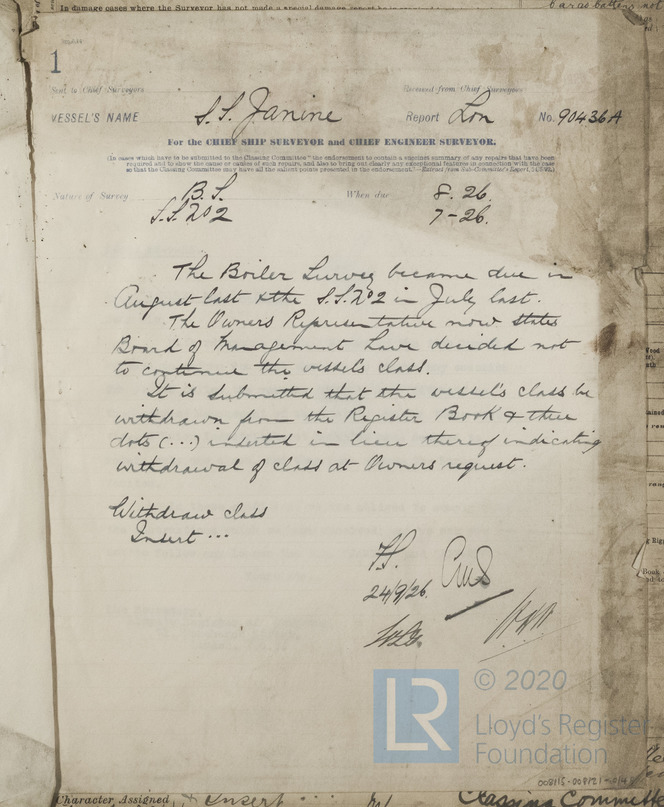 In damage cases where the Surveyor has not made a special damage
1
Sent to Chief Surveyors Received from Chief Surveyors
VESSEL'S NAME S.S. Janine Report Lon No. 90436A
For the CHIEF SHIP SURVEYOR and CHIEF ENGINEER SURVEYOR.
(In cases which have to be submitted to the Classing Committee "the endorsement to contain a succinct summary of any repairs that have been
required and to show the cause or causes of such repairs, and also to bring out clearly any exceptional features in connection with the case
so that the Classing Committee may have all the salient points presented in the endorsement."—Extract from Sub-Committee's Report,
Nature of Survey B.S. When due 8.26.
S.S. No 2 7-26.
The Boiler Survey became due in
August last & the S.S. No 2 in July last.
The Owners Representative now states
Board of Management have decided not
to continue the vessel's class.
It is submitted that the vessel's class be
withdrawn from the Register Book & three
dots (...) inserted in lieu thereof indicating
withdrawal of class at Owners request.
Withdraw class
Insert ...
24/9/26.
LR
© 2020
Lloyd's Register
Foundation
Character Assigned Insert
Classing Committ